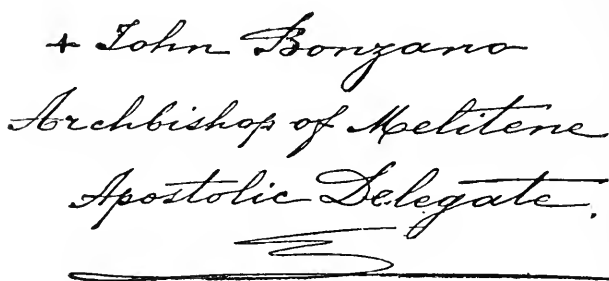 + John Bonzano
Archbishop of Melitene
Apostolic Delegate.